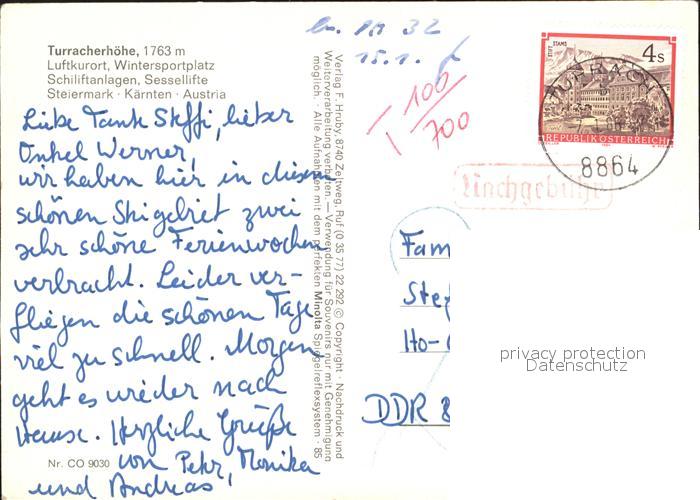 Turracherhöhe, 1763 m
Luftkurort, Wintersportplatz
Schiliftanlagen, Sessellifte
Steiermark · Kärnten · Austria
Liebe Tante Steffi, lieber
Onkel Werner,
wir haben hier in diesem
schönen Skigebiet zwei
sehr schöne Ferienwochen
verbracht. Leider ver-
fliegen die schönen Tage
viel zu schnell. Morgen
geht es wieder nach
Hause. Herzliche Grüße
von Petr, Monika
und Andreas,
Nr. CO 9030
Verlag F. Hruby, 8740 Zeltweg, Ruf (0 35 77) 22 292 © Copyright · Nachdruck und
Weiterverarbeitung verboten. — Verwendung für Souvenirs nur mit Genehmigung
möglich. · Alle Aufnahmen mit dem perfekten Minolta Spiegelreflexsystem · 85
32
15.1.
T 100
700
STIFT STAMS
4 S
REPUBLIK ÖSTERREICH
8864
Nachgebühr
Fam
Ho-
DDR 8
privacy protection
Datenschutz